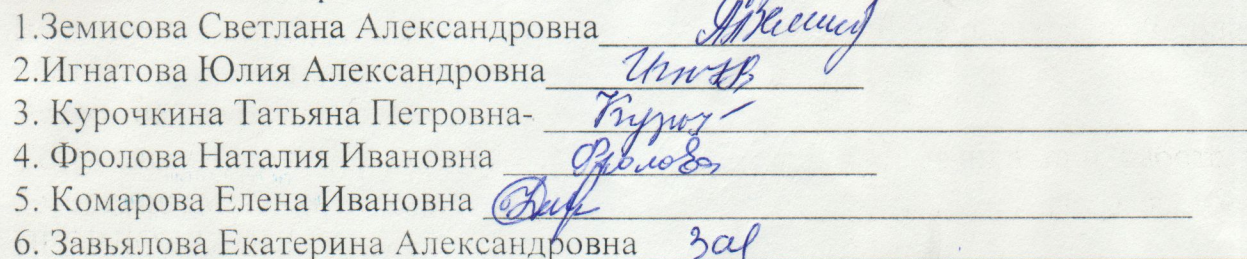 1.Земисова Светлана Александровна
2.Игнатова Юлия Александровна
3. Курочкина Татьяна Петровна- Куроч
4. Фролова Наталия Ивановна Фролова
5. Комарова Елена Ивановна
6. Завьялова Екатерина Александровна Зав